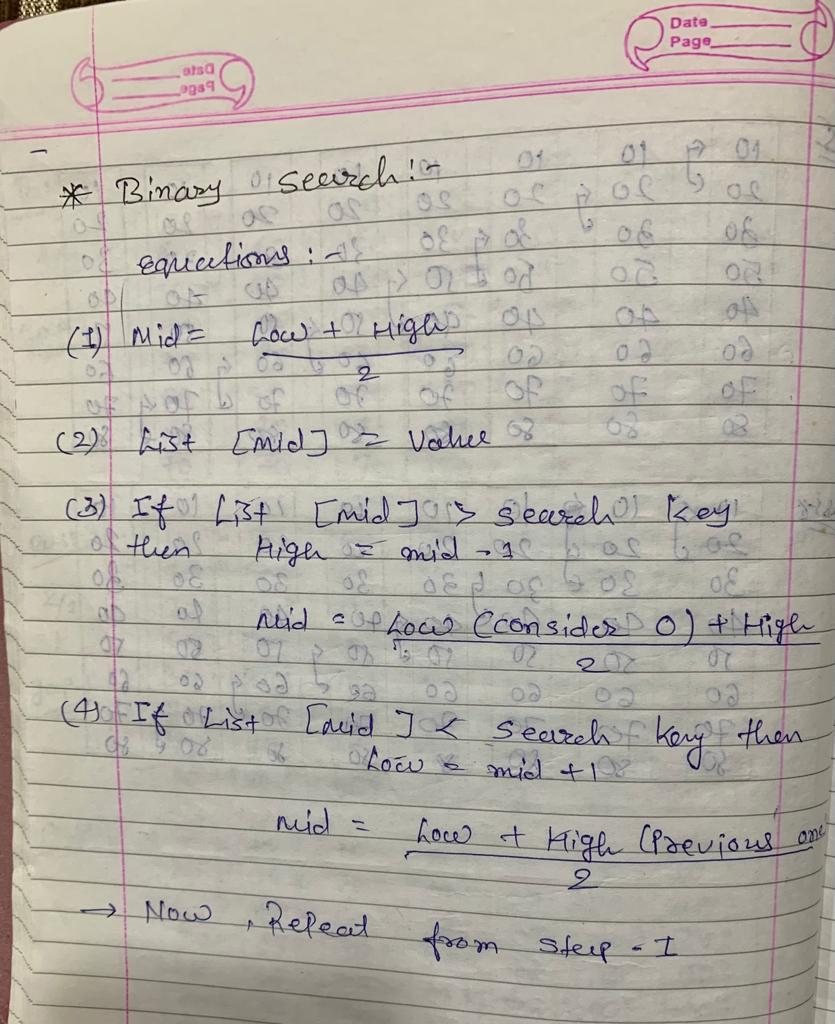 Date
Page
* Binary search :-
equations :-
(1) Mid = Low + High
2
(2) List [mid] = Value
(3) If List [mid] > search key
then High = mid - 1
mid = Low (consider 0) + High
2
(4) If List [mid] < search key then
Low = mid + 1
mid = Low + High (Previous one
2
→ Now, Repeat from step - I